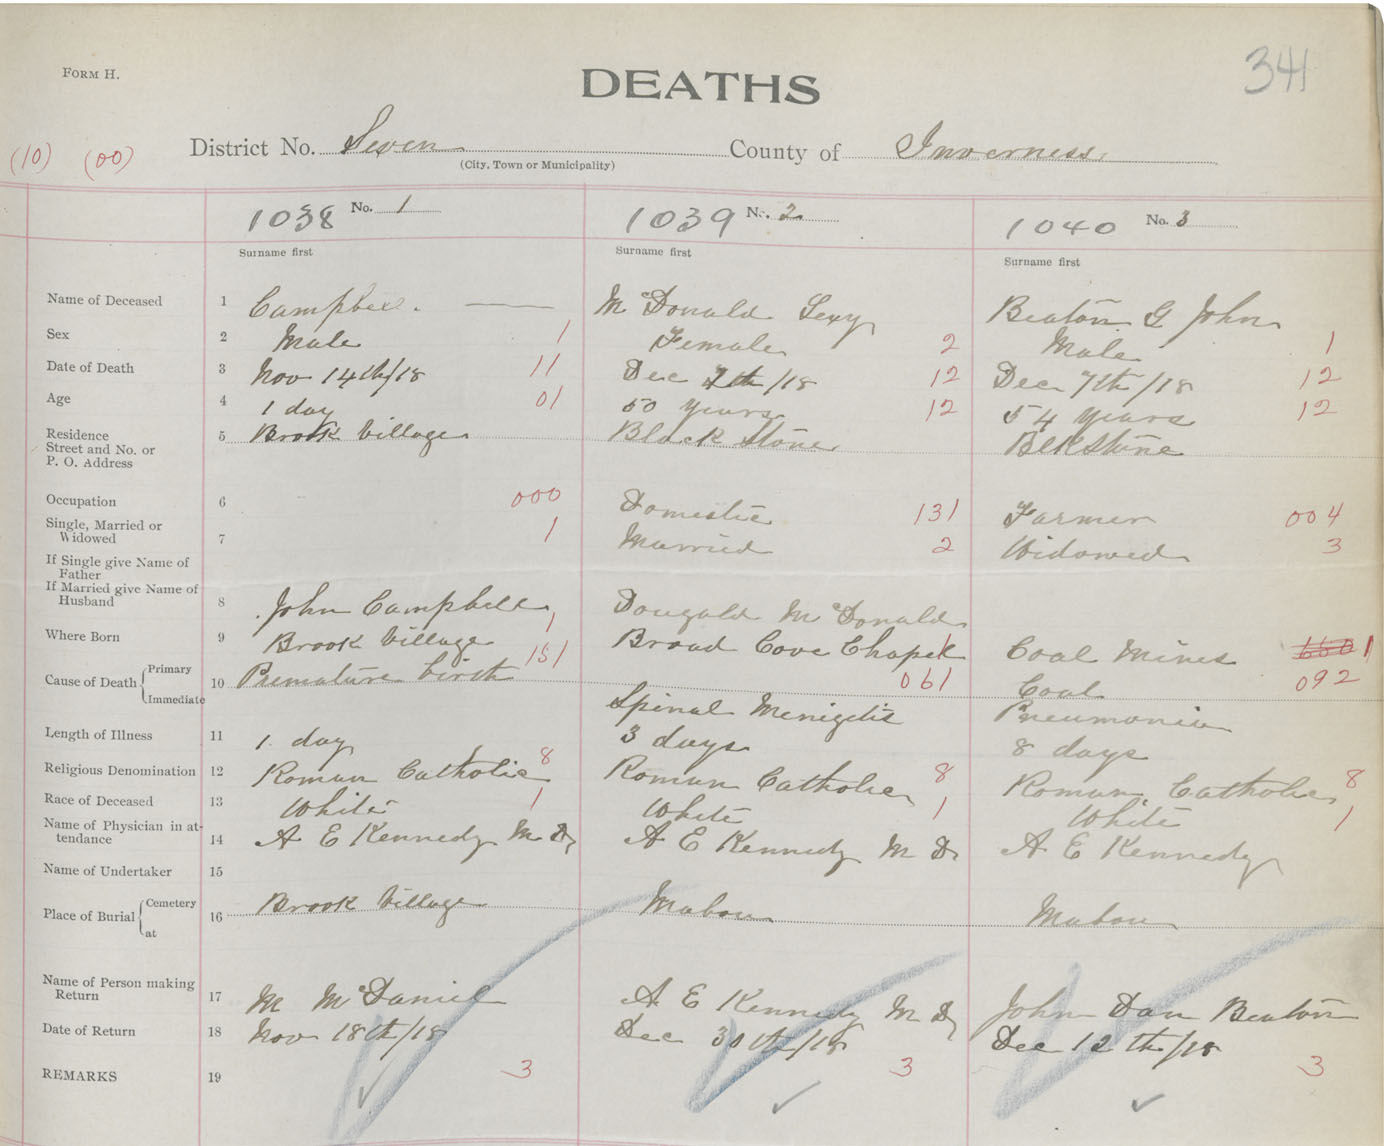 FORM H.
DEATHS
341
(10) (00) District No. Seven County of Inverness
(City, Town or Municipality)
1038 No. 1 1039 No. 2 1040 No. 3
Surname first Surname first Surname first
Name of Deceased 1 Campbell. — McDonald Lexy Beaton G John
Sex 2 Male 1 Female 2 Male 1
Date of Death 3 Nov 14th/18 11 Dec 7th/18 12 Dec 7th/18 12
Age 4 1 day 01 50 Years 12 54 Years 12
Residence 5 Brook Village Black Stone BlkStone
Street and No. or
P. O. Address
Occupation 6 000 Domestic 131 Farmer 004
Single, Married or
Widowed 7 1 Married 2 Widowed 3
If Single give Name of
Father
If Married give Name of
Husband 8 John Campbell Dougald McDonald
Where Born 9 Brook Village 1 Broad Cove Chapel 1 Coal Mines 1
Cause of Death Primary 10 Premature birth 151 061 Coal 092
Immediate Spinal Menigitis Pneumonia
Length of Illness 11 1 day 3 days 8 days
Religious Denomination 12 Roman Catholic 8 Roman Catholic 8 Roman Catholic 8
Race of Deceased 13 White 1 White 1 White 1
Name of Physician in at-
tendance 14 A E Kennedy M D A E Kennedy M D A E Kennedy
Name of Undertaker 15
Place of Burial Cemetery 16 Brook Village Mabou Mabou
at
Name of Person making
Return 17 M McDaniel A E Kennedy M D John Dan Beaton
Date of Return 18 Nov 18th/18 Dec 30th/18 Dec 12th/18
REMARKS 19 3 3 3